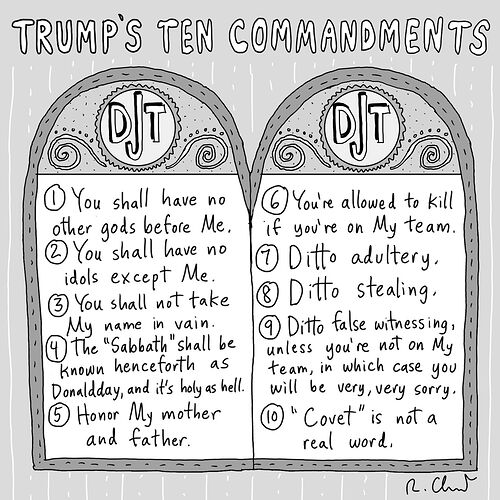 TRUMP'S TEN COMMANDMENTS
DJT
DJT
① You shall have no
other gods before Me.
② You shall have no
idols except Me.
③ You shall not take
My name in vain.
④ The "Sabbath" shall be
known henceforth as
Donaldday, and it's holy as hell.
⑤ Honor My mother
and father.
⑥ You're allowed to kill
if you're on My team.
⑦ Ditto adultery.
⑧ Ditto stealing.
⑨ Ditto false witnessing,
unless you're not on My
team, in which case you
will be very, very sorry.
⑩ "Covet" is not a
real word.